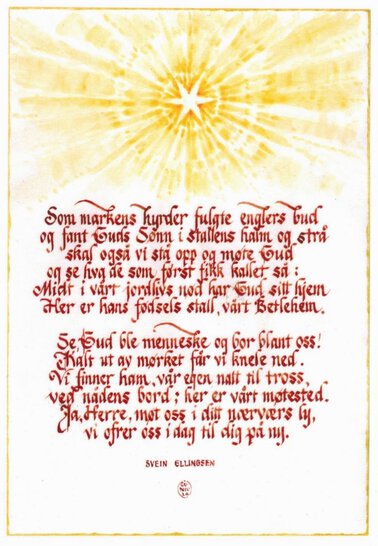 Som markens hyrder fulgte englers bud
og fant Guds Sønn i stallens halm og strå
skal også vi stå opp og møte Gud
og se hva de som først fikk kallet så :
Midt i vårt jordlivs nød har Gud sitt hjem
Her er hans fødsels stall, vårt Betlehem.
Se, Gud ble menneske og bor blant oss!
Kalt ut av mørket får vi knele ned.
Vi finner ham, vår egen natt til tross,
ved nådens bord ; her er vårt møtested.
Ja, Herre, møt oss i ditt nærværs ly,
vi ofrer oss i dag til dig på ny.
SVEIN ELLINGSEN